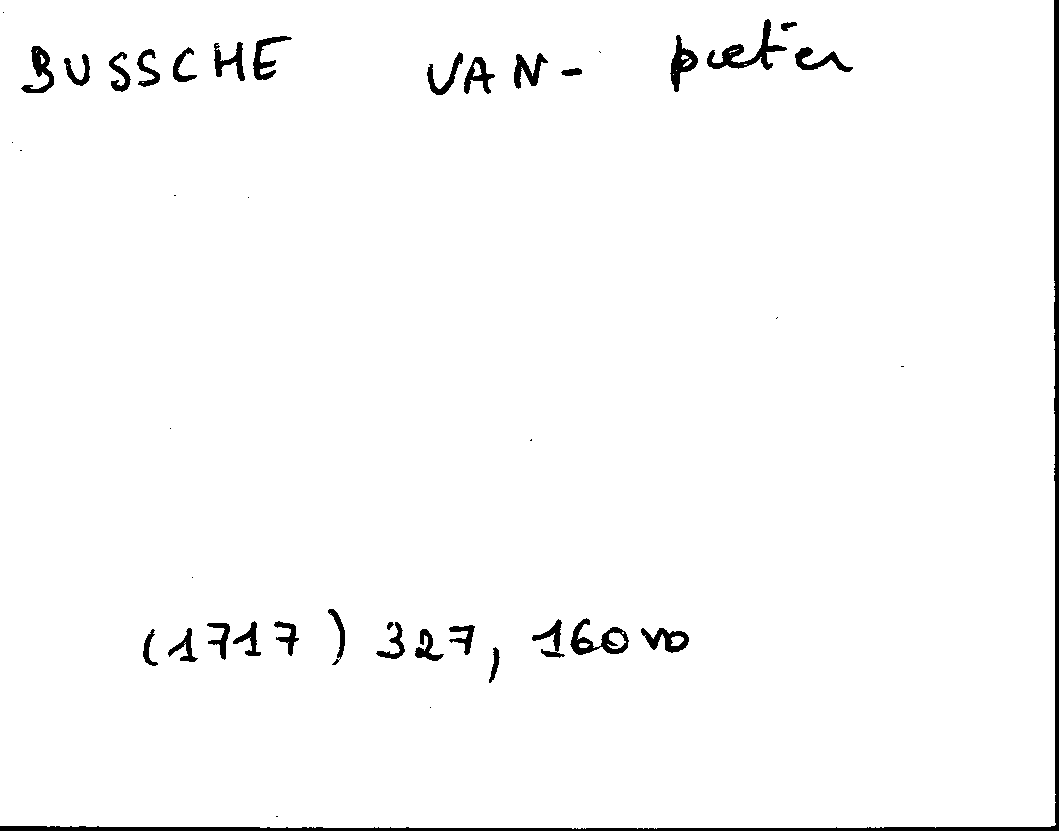 BUSSCHE VAN- pieter
(1717) 327, 160vo